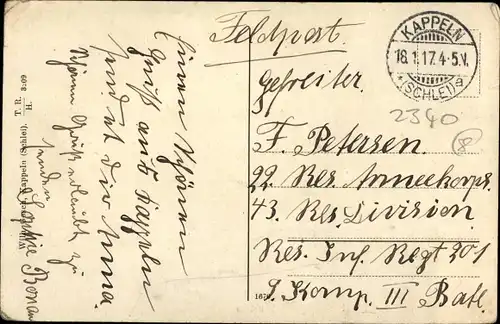 Feldpost
KAPPELN
18.1.17.4-5.V.
(SCHLEI) a
Gefreiter
2340
8
F. Petersen
22. Res. Armeekorps.
43. Res. Division
Res. Inf. Regt 201
9. Komp. III Batl.
Einen schönen
Gruß aus Kappeln
sendet dir Anna.
Gruß erlaubt
zu
senden
Sophie
Kappeln (Schlei). T. R. 3:09
H.
167